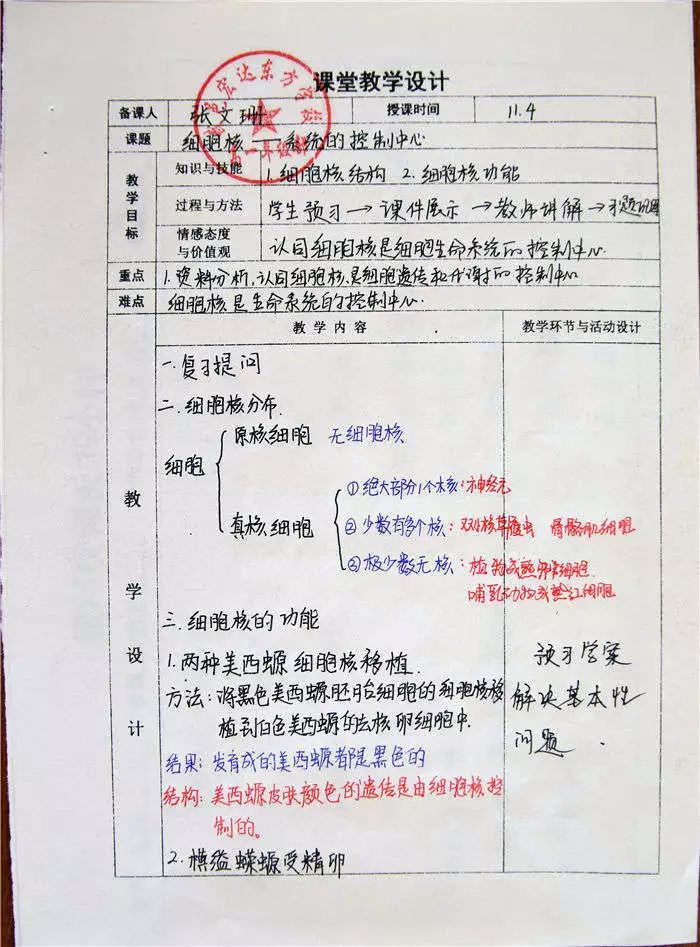 课堂教学设计
备课人 张文珊 授课时间 11.4
课题 细胞核——系统的控制中心
教学目标
知识与技能 1.细胞核结构 2.细胞核功能
过程与方法 学生预习→课件展示→教师讲解→习题巩固
情感态度与价值观 认同细胞核是细胞生命系统的控制中心.
重点 1.资料分析,认同细胞核是细胞遗传和代谢的控制中心
难点 细胞核是生命系统的控制中心.
教学内容 教学环节与活动设计
教学设计
一.复习提问
二.细胞核分布.
细胞
原核细胞 无细胞核.
真核细胞
①绝大部分1个核:神经元
②少数有多个核:双小核草履虫 骨骼肌细胞
③极少数无核:植物成熟筛管细胞.
哺乳动物成熟红细胞
三.细胞核的功能
1.两种美西螈细胞核移植.
方法:将黑色美西螈胚胎细胞的细胞核移
植到白色美西螈的去核卵细胞中.
结果:发育成的美西螈都是黑色的
结构:美西螈皮肤颜色的遗传是由细胞核控
制的。
2.横缢蝾螈受精卵
预习学案
解决基本性
问题.
宏达东方学校
高一年级部